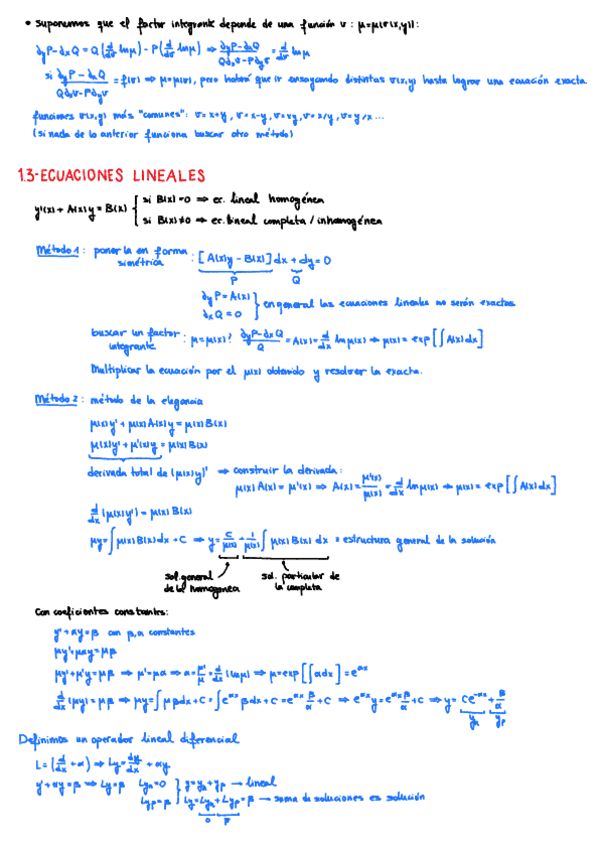 • Suponemos que el factor integrante depende de una función v : μ=μ(v(x,y)):
∂yP-∂xQ = Q(d/dv lnμ) - P(d/dv lnμ) ⇒ (∂yP-∂xQ)/(Q∂xv-P∂yv) = d/dv lnμ
si (∂yP-∂xQ)/(Q∂xv-P∂yv) = f(v) ⇒ μ=μ(v), pero habrá que ir ensayando distintas v(x,y) hasta lograr una ecuación exacta
funciones v(x,y) más "comunes": v=x+y, v=x-y, v=xy, v=x/y, v=y/x ...
(si nada de lo anterior funciona buscar otro método)
1.3-ECUACIONES LINEALES
y'(x) + A(x)y = B(x) { si B(x)=0 ⇒ ec. lineal homogénea
si B(x)≠0 ⇒ ec. lineal completa / inhomogénea
Método 1: ponerla en forma simétrica : [A(x)y - B(x)]dx + dy = 0
P Q
∂yP = A(x)
∂xQ = 0 } en general las ecuaciones lineales no serán exactas
buscar un factor integrante : μ=μ(x)? (∂yP-∂xQ)/Q = A(x) = d/dx ln μ(x) ⇒ μ(x) = exp[∫A(x)dx]
Multiplicar la ecuación por el μ(x) obtenido y resolver la exacta.
Método 2: método de la elegancia
μ(x)y' + μ(x)A(x)y = μ(x)B(x)
μ(x)y' + μ'(x)y = μ(x)B(x)
derivada total de (μ(x)y)' ⇒ construir la derivada:
μ(x)A(x) = μ'(x) ⇒ A(x) = μ'(x)/μ(x) = d/dx lnμ(x) ⇒ μ(x) = exp[∫A(x)dx]
d/dx (μ(x)y') = μ(x)B(x)
μy = ∫μ(x)B(x)dx + C ⇒ y = C/μ(x) + 1/μ(x) ∫μ(x)B(x)dx = estructura general de la solución
sol. general de la homogenea
sol. particular de la completa
Con coeficientes constantes:
y' + αy = β con β,α constantes
μy' + μαy = μβ
μy' + μ'y = μβ ⇒ μ' = μα ⇒ α = μ'/μ = d/dx (lnμ) ⇒ μ = exp[∫αdx] = e^αx
d/dx (μy) = μβ ⇒ μy = ∫μβdx + C = ∫e^αx βdx + C = e^αx β/α + C ⇒ e^αx y = e^αx β/α + C ⇒ y = Ce^-αx + β/α
yh yp
Definimos un operador lineal diferencial
L = (d/dx + α) ⇒ Ly = dy/dx + αy
y' + αy = β ⇒ Ly = β Lyh = 0 } y = yh + yp → lineal
Lyp = β } Ly = Lyh + Lyp = β → suma de soluciones es solución
0 β